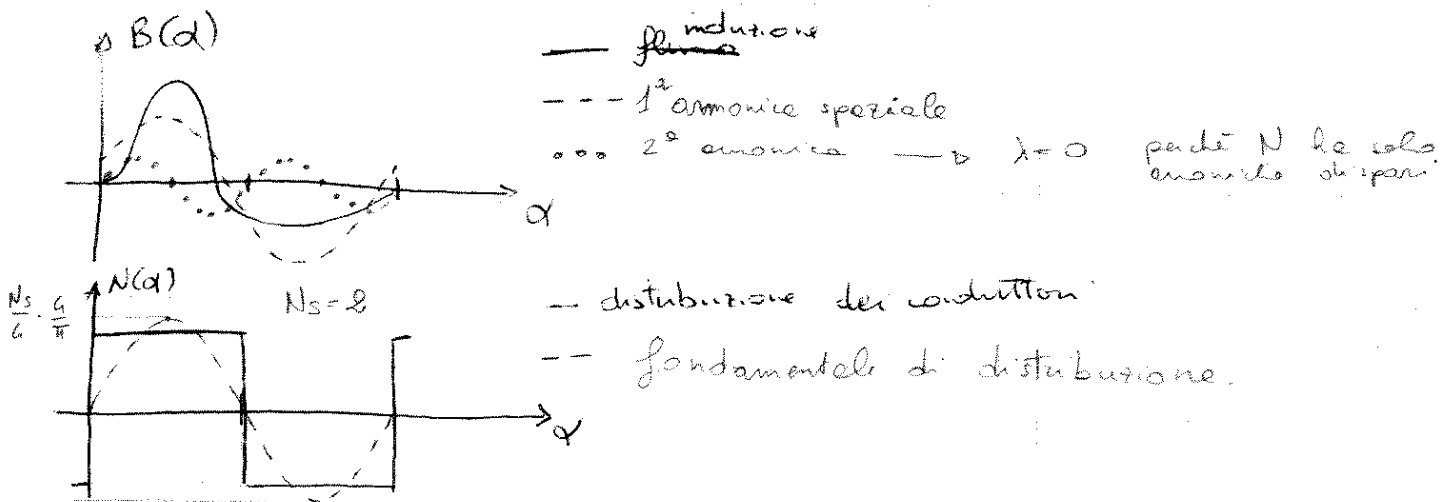 B(α)
induzione
flusso
1ª armonica spaziale
2ª armonica → λ=0 perché N ha solo
armoniche dispari.
α
N(α)
Ns = 2
— distribuzione dei conduttori
-- fondamentale di distribuzione.
α